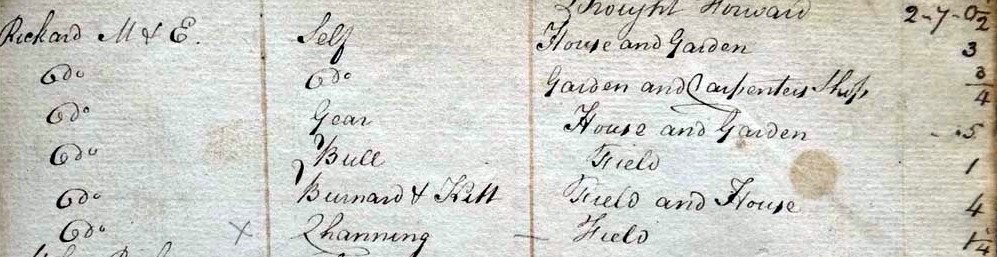 Brought Forward 2-7-0½
Rickard M & E. Self House and Garden 3
Do Do Garden and Carpenters Shop ¾
Do Gear House and Garden .5
Do Bull Field 1
Do Burnard & Kitt Field and House 4
Do X Channing - Field 1¼